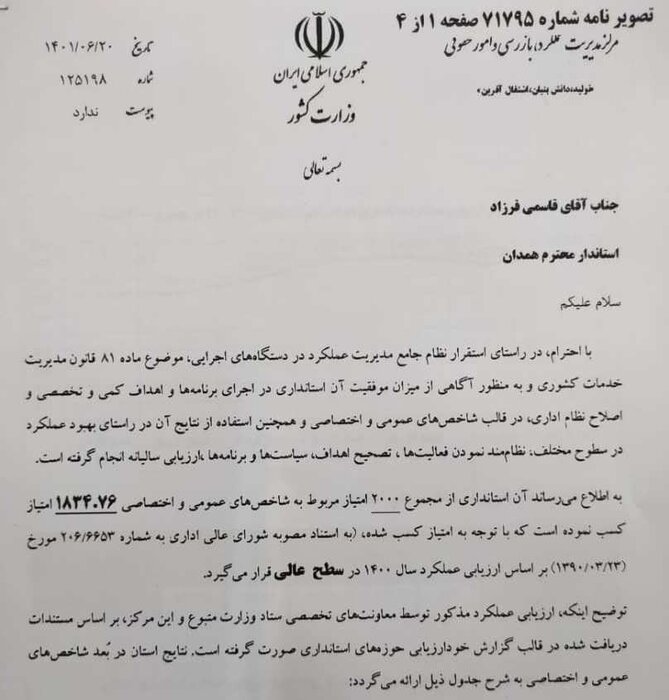 تصویر نامه شماره ۷۱۷۹۵ صفحه ۱ از ۴
مرکز مدیریت عملکرد، بازرسی و امور حقوقی
«تولید، دانش بنیان، اشتغال آفرین»
جمهوری اسلامی ایران
وزارت کشور
بسمه تعالی
تاریخ ۱۴۰۱/۰۶/۲۰
شماره ۱۲۵۱۹۸
پیوست ندارد
جناب آقای قاسمی فرزاد
استاندار محترم همدان
سلام علیکم
با احترام، در راستای استقرار نظام جامع مدیریت عملکرد در دستگاه‌های اجرایی، موضوع ماده ۸۱ قانون مدیریت
خدمات کشوری و به منظور آگاهی از میزان موفقیت آن استانداری در اجرای برنامه‌ها و اهداف کمی و تخصصی و
اصلاح نظام اداری، در قالب شاخص‌های عمومی و اختصاصی و همچنین استفاده از نتایج آن در راستای بهبود عملکرد
در سطوح مختلف، نظام‌مند نمودن فعالیت‌ها ، تصحیح اهداف، سیاست‌ها و برنامه‌ها ،ارزیابی سالیانه انجام گرفته است.
به اطلاع می‌رساند آن استانداری از مجموع ۲۰۰۰ امتیاز مربوط به شاخص‌های عمومی و اختصاصی ۱۸۳۴.۷۶ امتیاز
کسب نموده است که با توجه به امتیاز کسب شده، (به استناد مصوبه شورای عالی اداری به شماره ۲۰۶/۶۶۵۳ مورخ
۱۳۹۰/۰۳/۲۳) بر اساس ارزیابی عملکرد سال ۱۴۰۰ در سطح عالی قرار می‌گیرد.
توضیح اینکه، ارزیابی عملکرد مذکور توسط معاونت‌های تخصصی ستاد وزارت متبوع و این مرکز، بر اساس مستندات
دریافت شده در قالب گزارش خودارزیابی حوزه‌های استانداری صورت گرفته است. نتایج استان در بُعد شاخص‌های
عمومی و اختصاصی به شرح جدول ذیل ارائه می‌گردد: